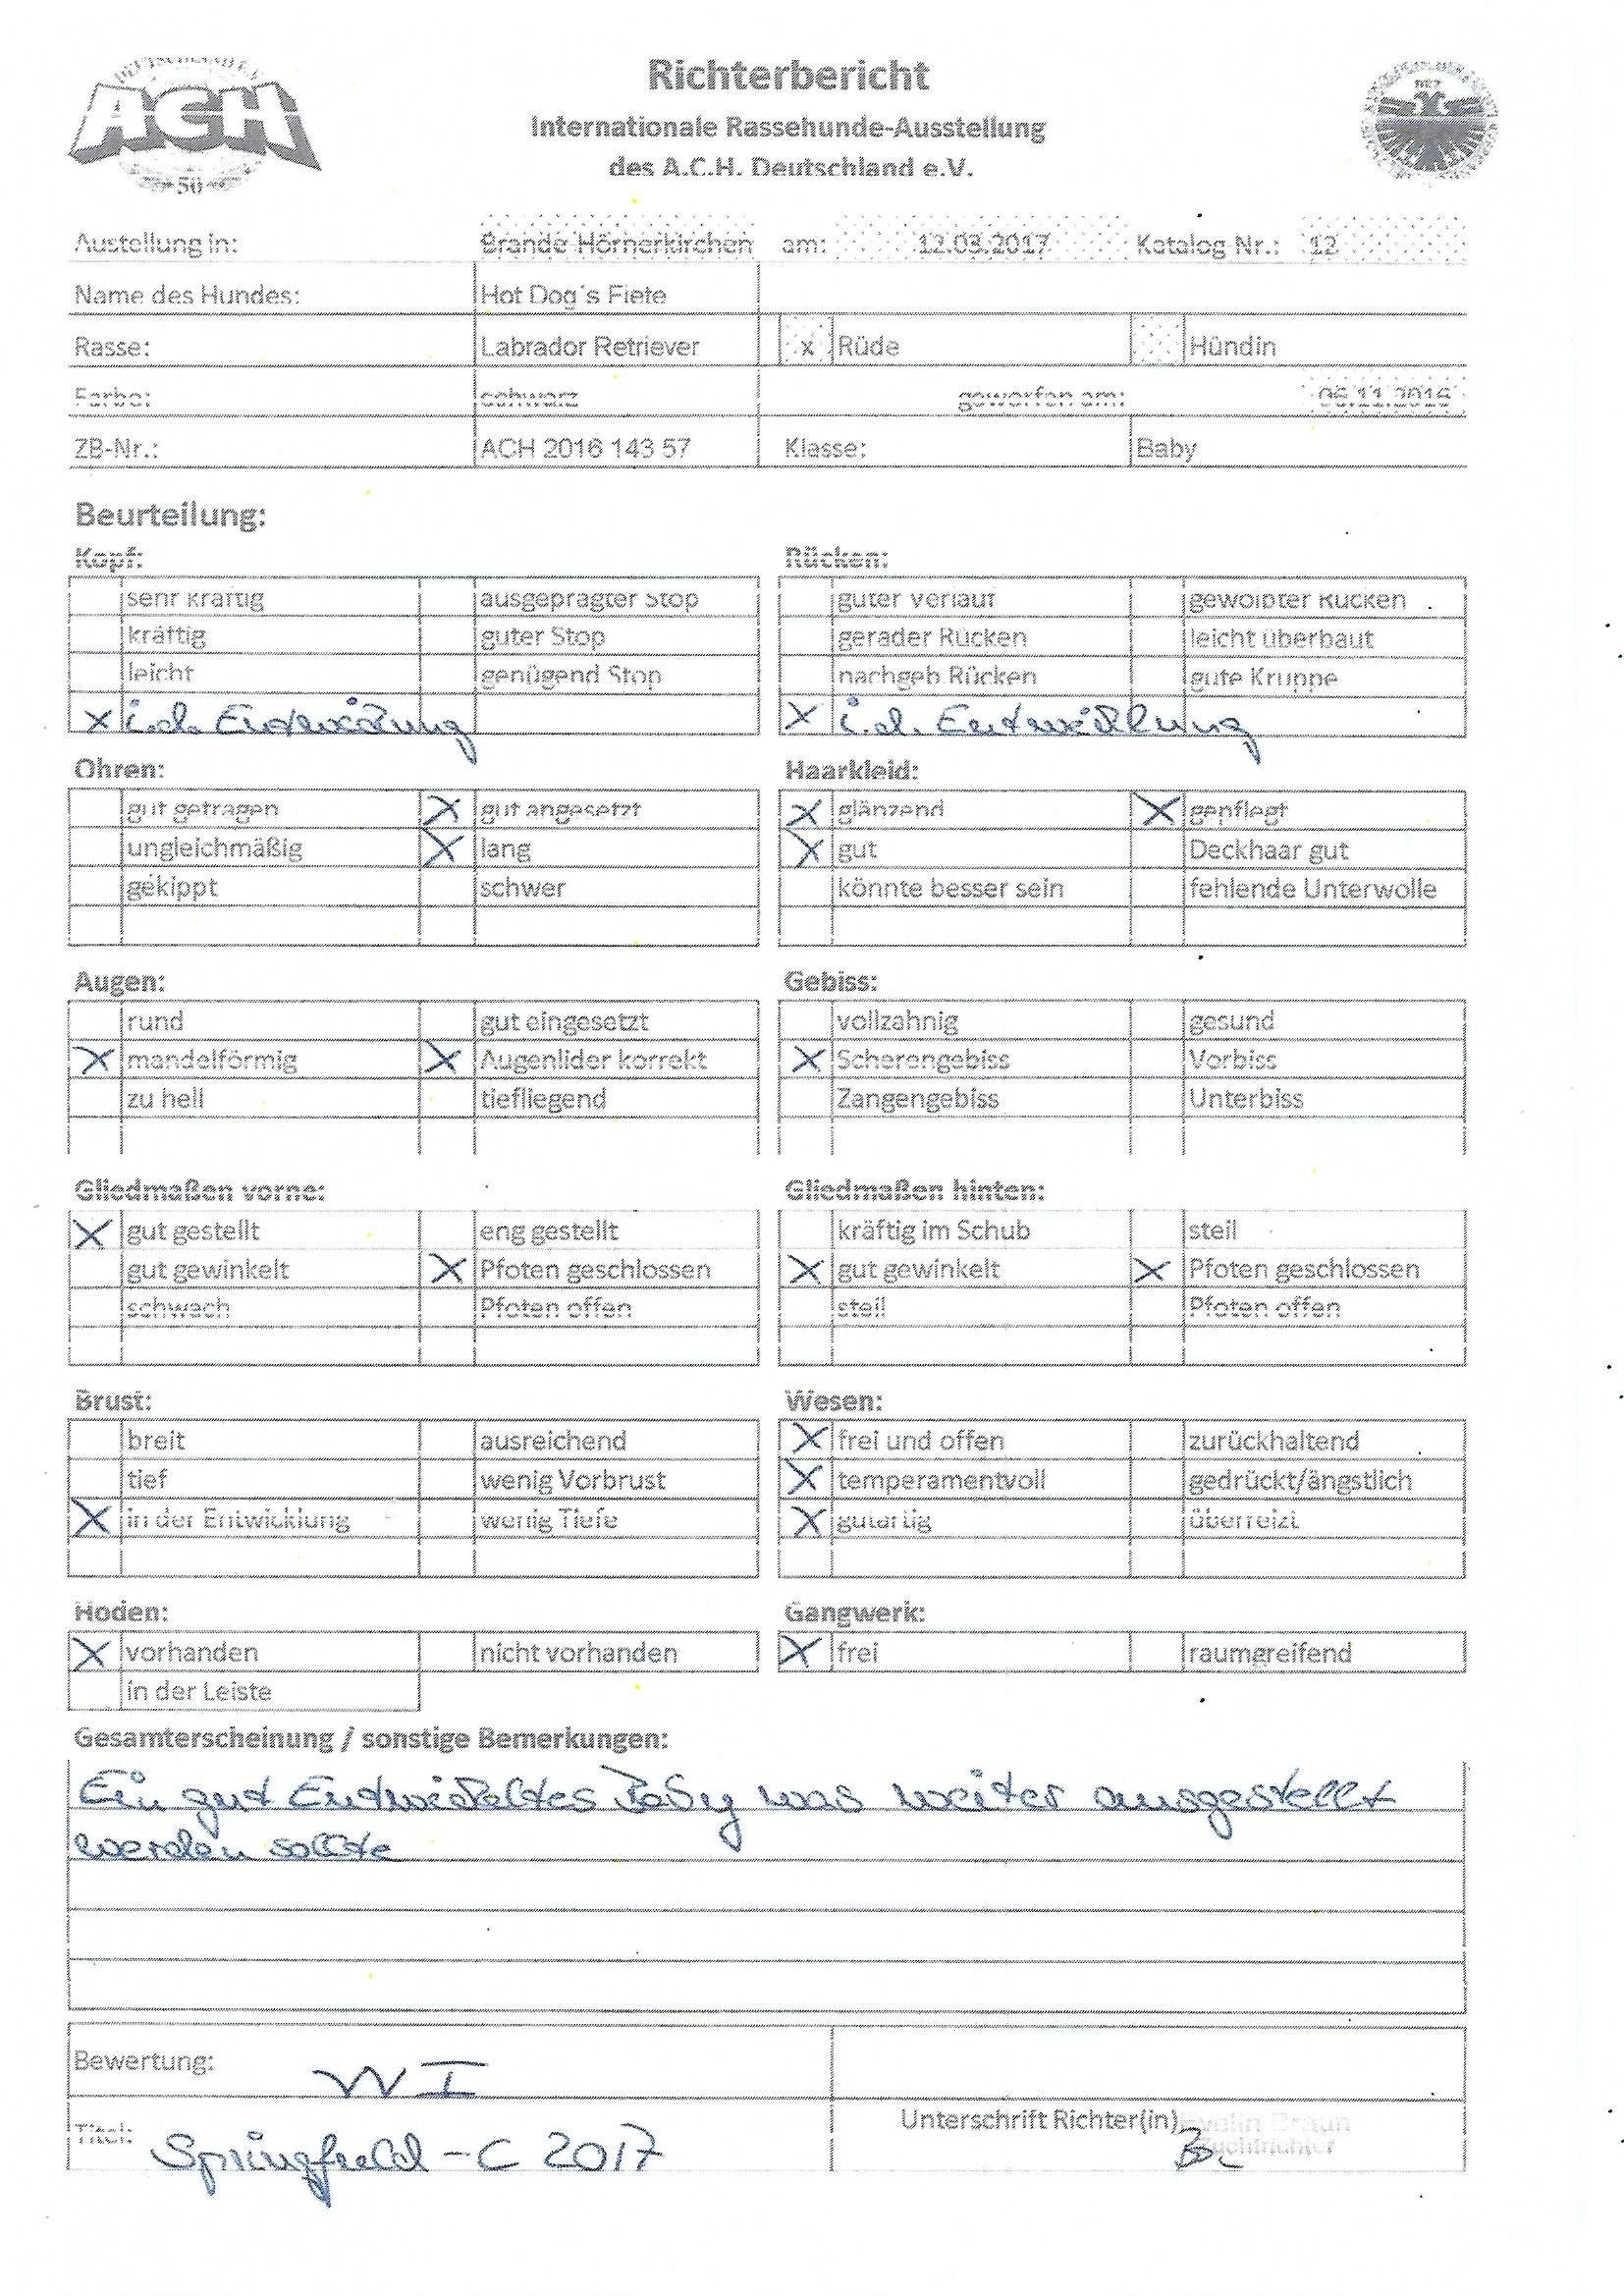 ACH
50
Richterbericht
Internationale Rassehunde-Ausstellung
des A.C.H. Deutschland e.V.
Austellung in: Brande-Hörnerkirchen am: 12.03.2017 Katalog-Nr.: 12
Name des Hundes: Hot Dog´s Fiete
Rasse: Labrador Retriever x Rüde Hündin
Farbe: schwarz geworfen am: 06.11.2016
ZB-Nr.: ACH 2016 143 57 Klasse: Baby
Beurteilung:
Kopf: Rücken:
sehr kräftig ausgeprägter Stop guter Verlauf gewölbter Rücken
kräftig guter Stop gerader Rücken leicht überbaut
leicht genügend Stop nachgeb.Rücken gute Kruppe
X i.d. Entwicklung X i.d. Entwicklung
Ohren: Haarkleid:
gut getragen X gut angesetzt X glänzend X gepflegt
ungleichmäßig X lang X gut Deckhaar gut
gekippt schwer könnte besser sein fehlende Unterwolle
Augen: Gebiss:
rund gut eingesetzt vollzahnig gesund
X mandelförmig X Augenlider korrekt X Scherengebiss Vorbiss
zu hell tiefliegend Zangengebiss Unterbiss
Gliedmaßen vorne: Gliedmaßen hinten:
X gut gestellt eng gestellt kräftig im Schub steil
gut gewinkelt X Pfoten geschlossen X gut gewinkelt X Pfoten geschlossen
schwach Pfoten offen steil Pfoten offen
Brust: Wesen:
breit ausreichend X frei und offen zurückhaltend
tief wenig Vorbrust X temperamentvoll gedrückt/ängstlich
X in der Entwicklung wenig Tiefe X gutartig überreizt
Hoden: Gangwerk:
X vorhanden nicht vorhanden X frei raumgreifend
in der Leiste
Gesamterscheinung / sonstige Bemerkungen:
Ein gut Entwickeltes Baby was weiter ausgestellt
werden sollte
Bewertung: WV I
Titel: Springfield-C 2017 Unterschrift Richter(in) Evelin Braun
Zuchtrichter